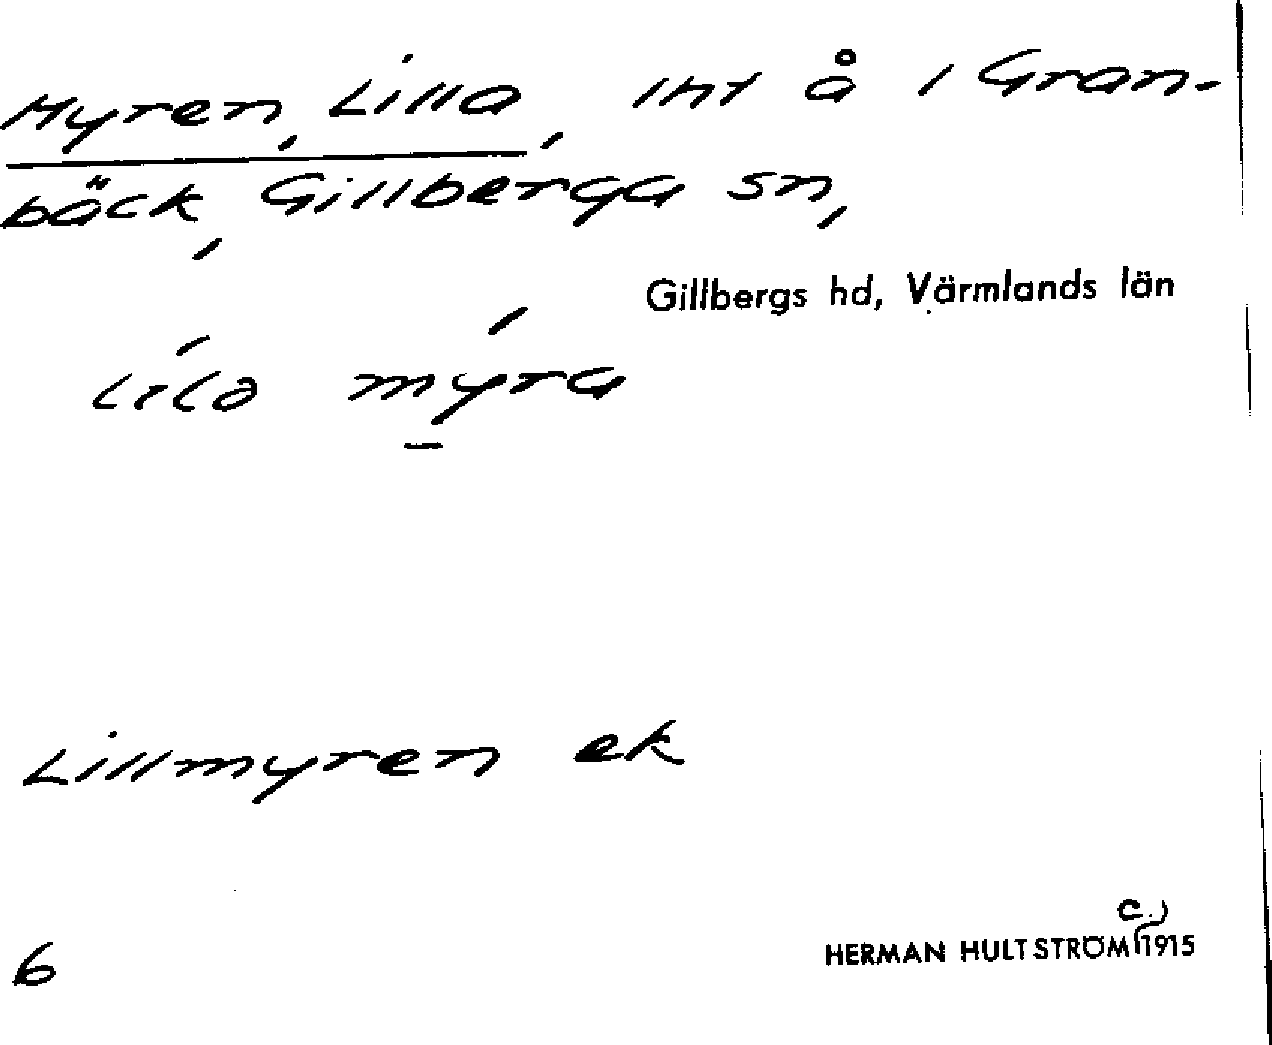 Myren, Lilla, int å i Gran-
bäck, Gillberga sn,
Gillbergs hd, Värmlands län
lila myra
Lillmyren ek
c.
6 HERMAN HULTSTRÖM 1915